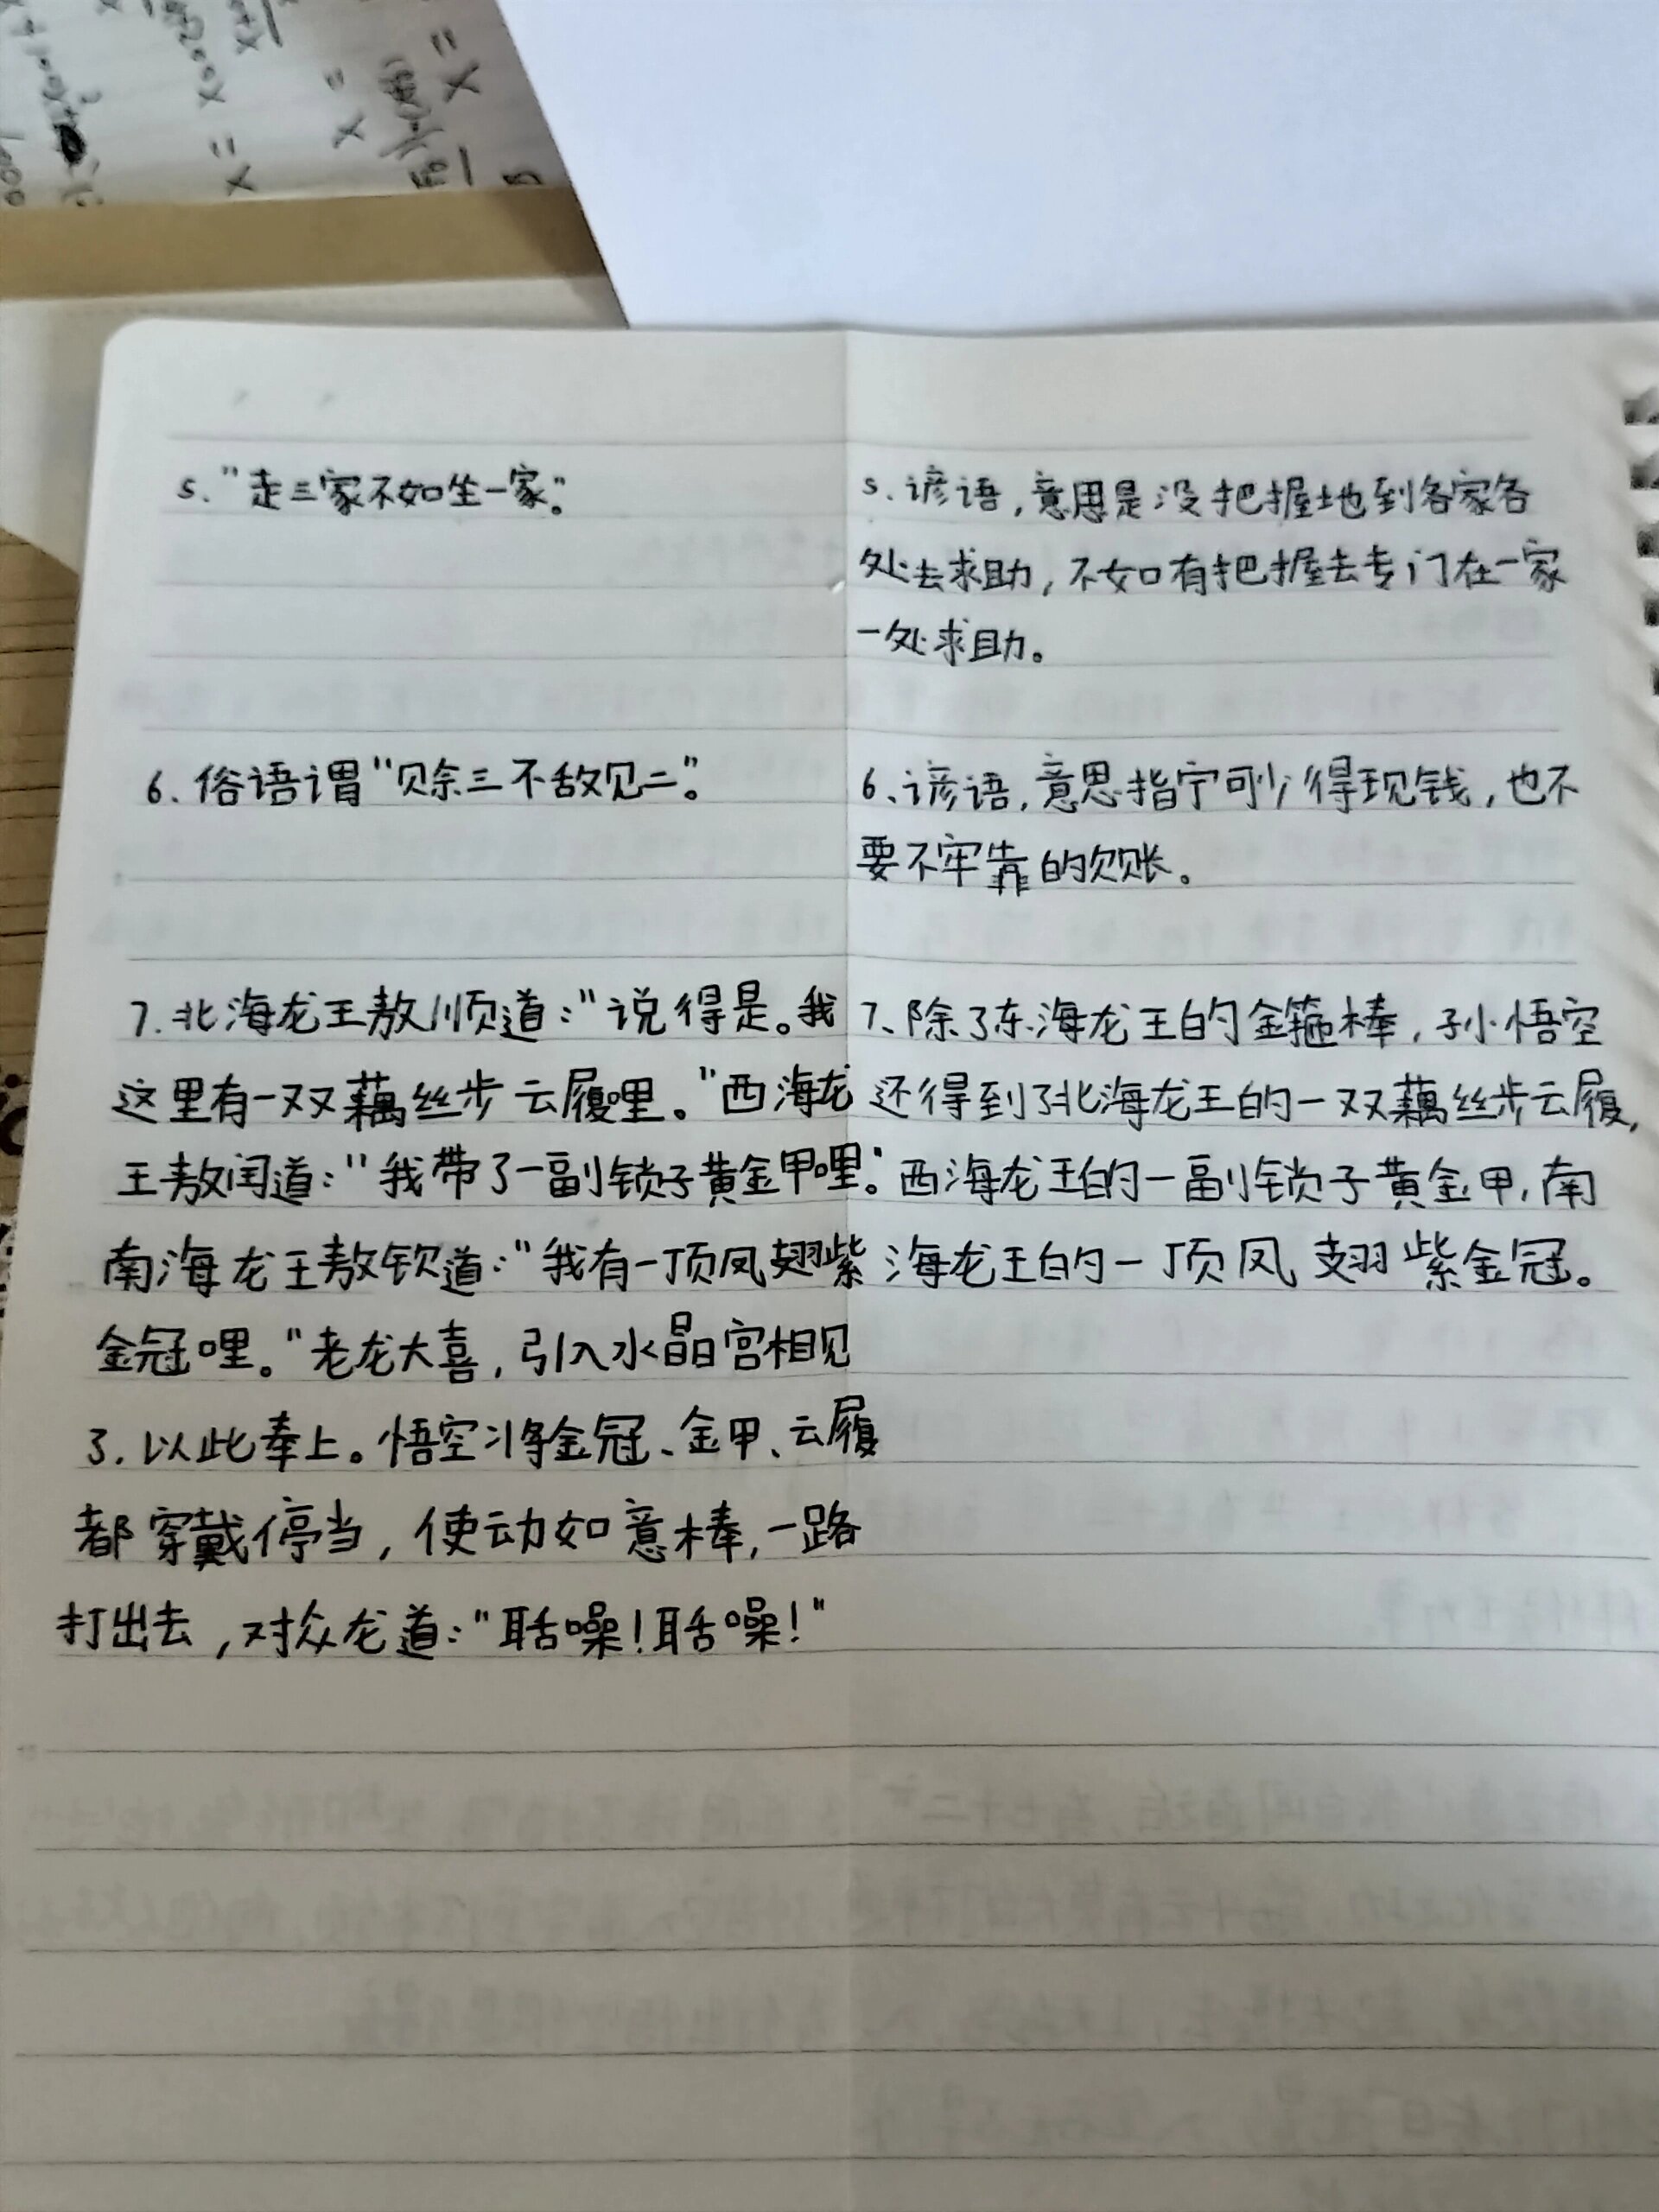 5、"走三家不如坐一家"。
5、谚语，意思是没把握地到各家各
处去求助，不如有把握去专门在一家
一处求助。
6、俗语谓"赊三不敌见二"。
6、谚语，意思指宁可少得现钱，也不
要不牢靠的欠账。
7.北海龙王敖顺道："说得是。我
这里有一双藕丝步云履哩。"西海龙
王敖闰道："我带了一副锁子黄金甲哩。"
南海龙王敖钦道："我有一顶凤翅紫
金冠哩。"老龙大喜，引入水晶宫相见
了，以此奉上。悟空将金冠、金甲、云履
都穿戴停当，使动如意棒，一路
打出去，对众龙道："聒噪！聒噪！"
7、除了东海龙王的金箍棒，孙悟空
还得到了北海龙王的一双藕丝步云履，
西海龙王的一副锁子黄金甲，南
海龙王的一顶凤翅紫金冠。
X=
X=
X=